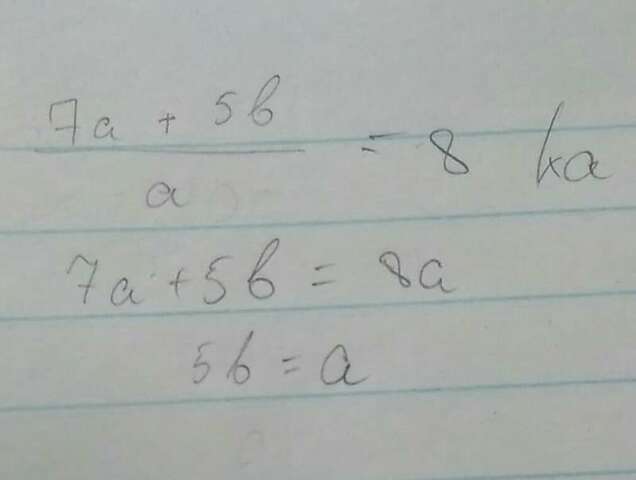 7a + 5b
a
= 8 ka
7a + 5b = 8a
5b = a